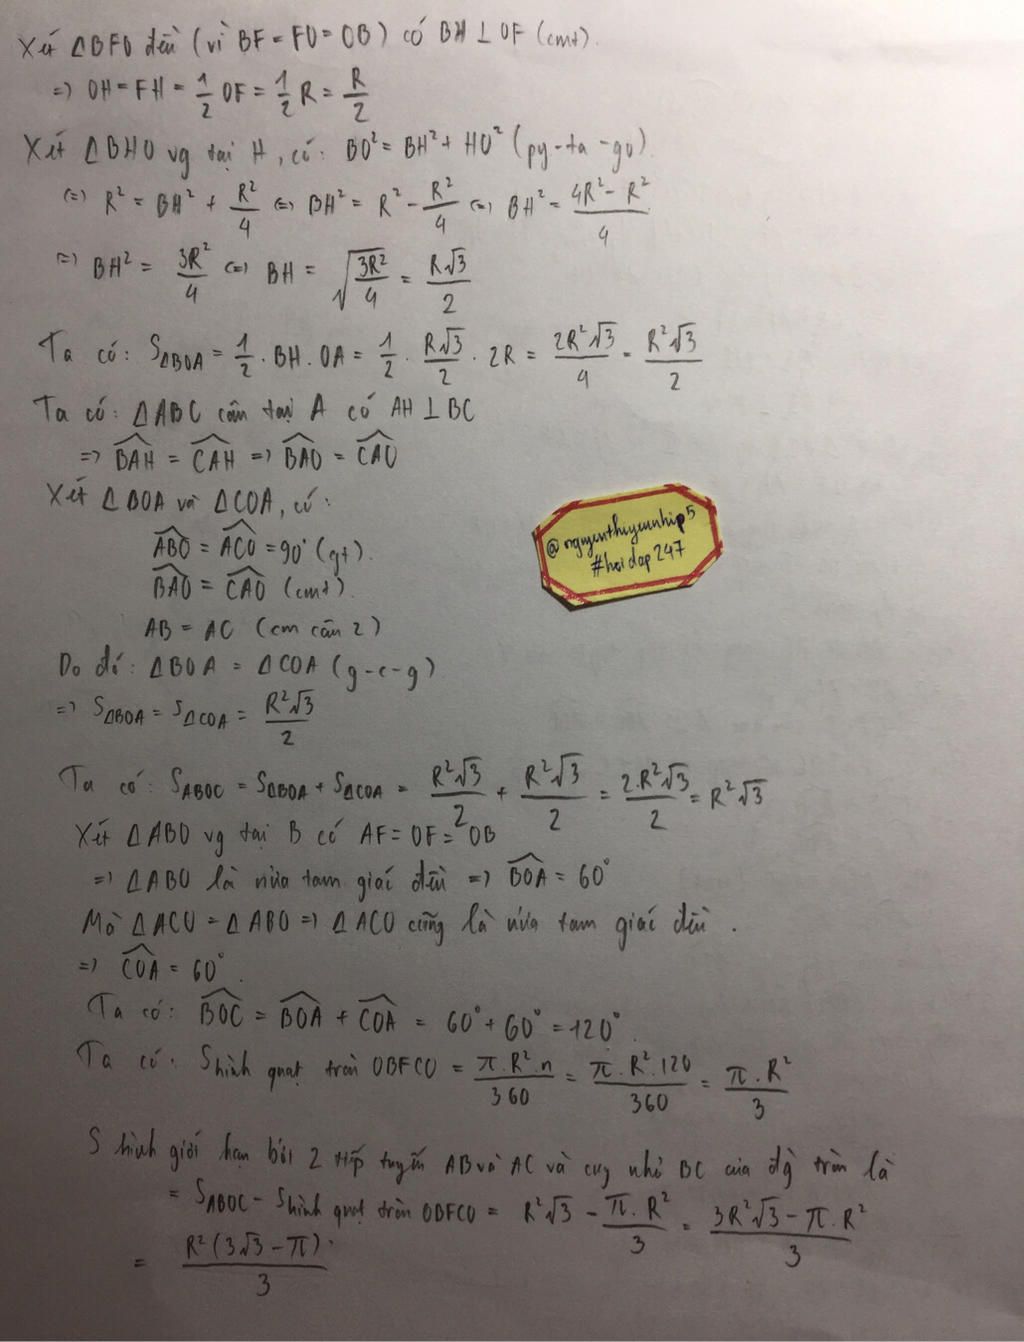 Xét ΔBFO đều (vì BF = FO = OB) có BH ⊥ OF (cmt).
=> OH = FH = 1/2 OF = 1/2 R = R/2
Xét ΔBHO vg tại H, có: BO² = BH² + HO² (py-ta-go)
<=> R² = BH² + R²/4 <=> BH² = R² - R²/4 <=> BH² = (4R² - R²)/4
<=> BH² = 3R²/4 <=> BH = √(3R²/4) = R√3/2
Ta có: SΔBOA = 1/2 . BH . OA = 1/2 . R√3/2 . 2R = 2R²√3/4 = R²√3/2
Ta có: ΔABC cân tại A có AH ⊥ BC
=> ∠BAH = ∠CAH => ∠BAO = ∠CAO
Xét ΔBOA và ΔCOA, có:
∠ABO = ∠ACO = 90° (gt).
∠BAO = ∠CAO (cmt).
AB = AC (cm câu 2)
Do đó: ΔBOA = ΔCOA (g-c-g)
=> SΔBOA = SΔCOA = R²√3/2
@nguyenthiyeunhip5
#hoidap247
Ta có: SABOC = SΔBOA + SΔCOA = R²√3/2 + R²√3/2 = 2.R²√3/2 = R²√3
Xét ΔABO vg tại B có AF = OF = OB
=> ΔABO là nửa tam giác đều => ∠BOA = 60°
Mà ΔACO = ΔABO => ΔACO cũng là nửa tam giác đều.
=> ∠COA = 60°.
Ta có: ∠BOC = ∠BOA + ∠COA = 60° + 60° = 120°.
Ta có: S hình quạt tròn OBFCO = π.R².n/360 = π.R².120/360 = π.R²/3
S hình giới hạn bởi 2 tiếp tuyến AB và AC và cung nhỏ BC của đg tròn là
= SABOC - S hình quạt tròn OBFCO = R²√3 - π.R²/3 = (3R²√3 - π.R²)/3
= R²(3√3 - π)/3.